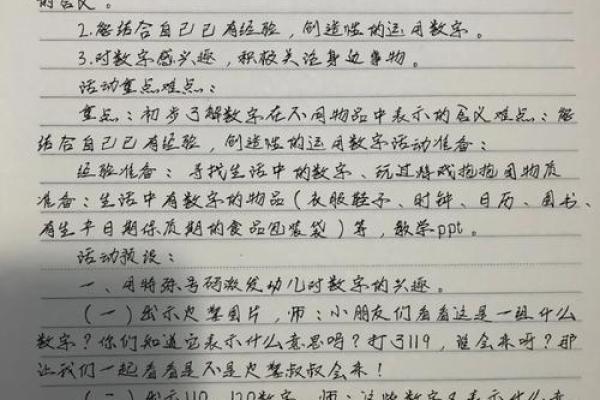 的含义。
2.能结合自己已有经验，创造性的运用数字。
3.对数字感兴趣，积极关注身边事物。
活动重点难点：
重点：初步了解数字在不同物品中表示的含义难点：能
结合自己已有经验，创造性的运用数字活动准备：
经验准备：寻找生活中的数字、玩过游戏抱抱团物质
准备：生活中有数字的物品（衣服鞋子、时钟、日历、图书、
有生产日期保质期的食品包装袋）等，教学ppt。
活动预设：
一、用特殊号码激发幼儿对数字的兴趣。
（一）出示火警图片，师：小朋友们看看这是一组什么
数字？你们知道它表示什么意思吗？打了119，谁会来呀？那
让我们一起看看是不是火警叔叔会来！
（二）出示110、120数字，师：这些数字又表示什么意